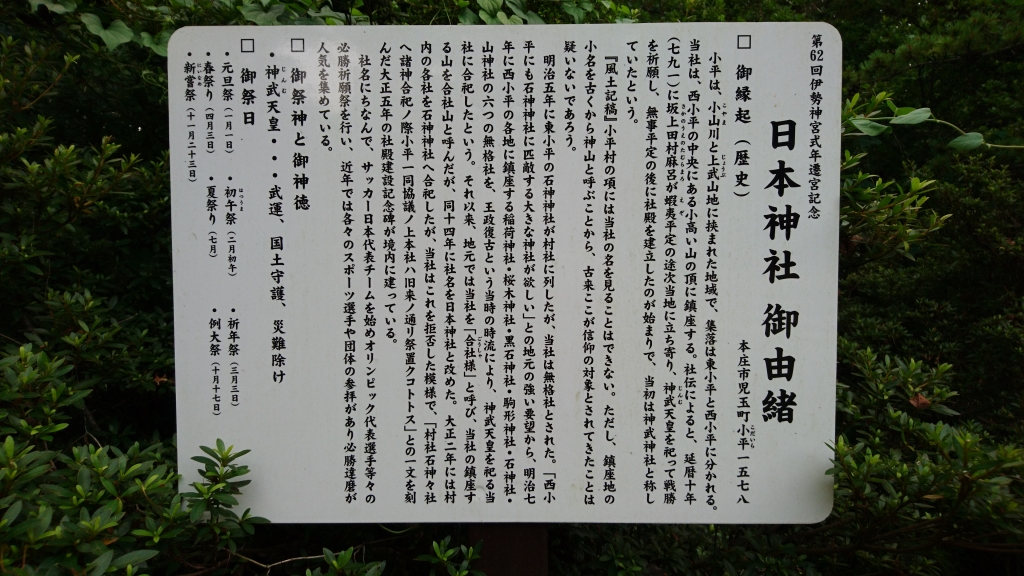 第62回伊勢神宮式年遷宮記念
日本神社 御由緒
本庄市児玉町小平一五七八
こだいら
□ 御縁起(歴史)
小平は、小山川と上武山地に挟まれた地域で、集落は東小平と西小平に分かれる。
こやま
じょうぶ
当社は、西小平の中央にある小高い山の頂に鎮座する。社伝によると、延暦十年
(七九一)に坂上田村麻呂が蝦夷平定の途次当地に立ち寄り、神武天皇を祀って戦勝
さかのうえのたむらまろ
えぞ
じんむ
を祈願し、無事平定の後に社殿を建立したのが始まりで、当初は神武神社と称し
ていたという。
『風土記稿』小平村の項には当社の名を見ることはできない。ただし、鎮座地の
小名を古くから神山と呼ぶことから、古来ここが信仰の対象とされてきたことは
疑いないであろう。
明治五年に東小平の石神神社が村社に列したが、当社は無格社とされた。「西小
平にも石神神社に匹敵する大きな神社が欲しい」との地元の強い要望から、明治七
年に西小平の各地に鎮座する稲荷神社・桜木神社・黒石神社・駒形神社・石神社・
山神社の六つの無格社を、王政復古という当時の時流により、神武天皇を祀る当
社に合祀したという。それ以来、地元では当社を「合社様」と呼び、当社の鎮座す
ごうしゃ
る山を合社山と呼んだが、同十四年に社名を日本神社と改めた。大正二年には村
内の各社を石神神社へ合祀したが、当社はこれを拒否した模様で、「村社石神々社
へ諸神合祀ノ際小平一同協議ノ上本社ハ旧来ノ通リ祭置クコトトス」との一文を刻
んだ大正五年の社殿建設記念碑が境内に建っている。
社名にちなんで、サッカー日本代表チームを始めオリンピック代表選手等々の
必勝祈願祭を行い、近年では各々のスポーツ選手や団体の参拝があり必勝達磨が
人気を集めている。
□ 御祭神と御神徳
・神武天皇・・・武運、国土守護、災難除け
じんむ
□ 御祭日
・元旦祭(一月一日) ・初午祭(二月初午) ・祈年祭(三月三日)
はつうま
・春祭り(四月三日) ・夏祭り(七月) ・例大祭(十月十七日)
・新嘗祭(十一月二十三日)
にいなめ